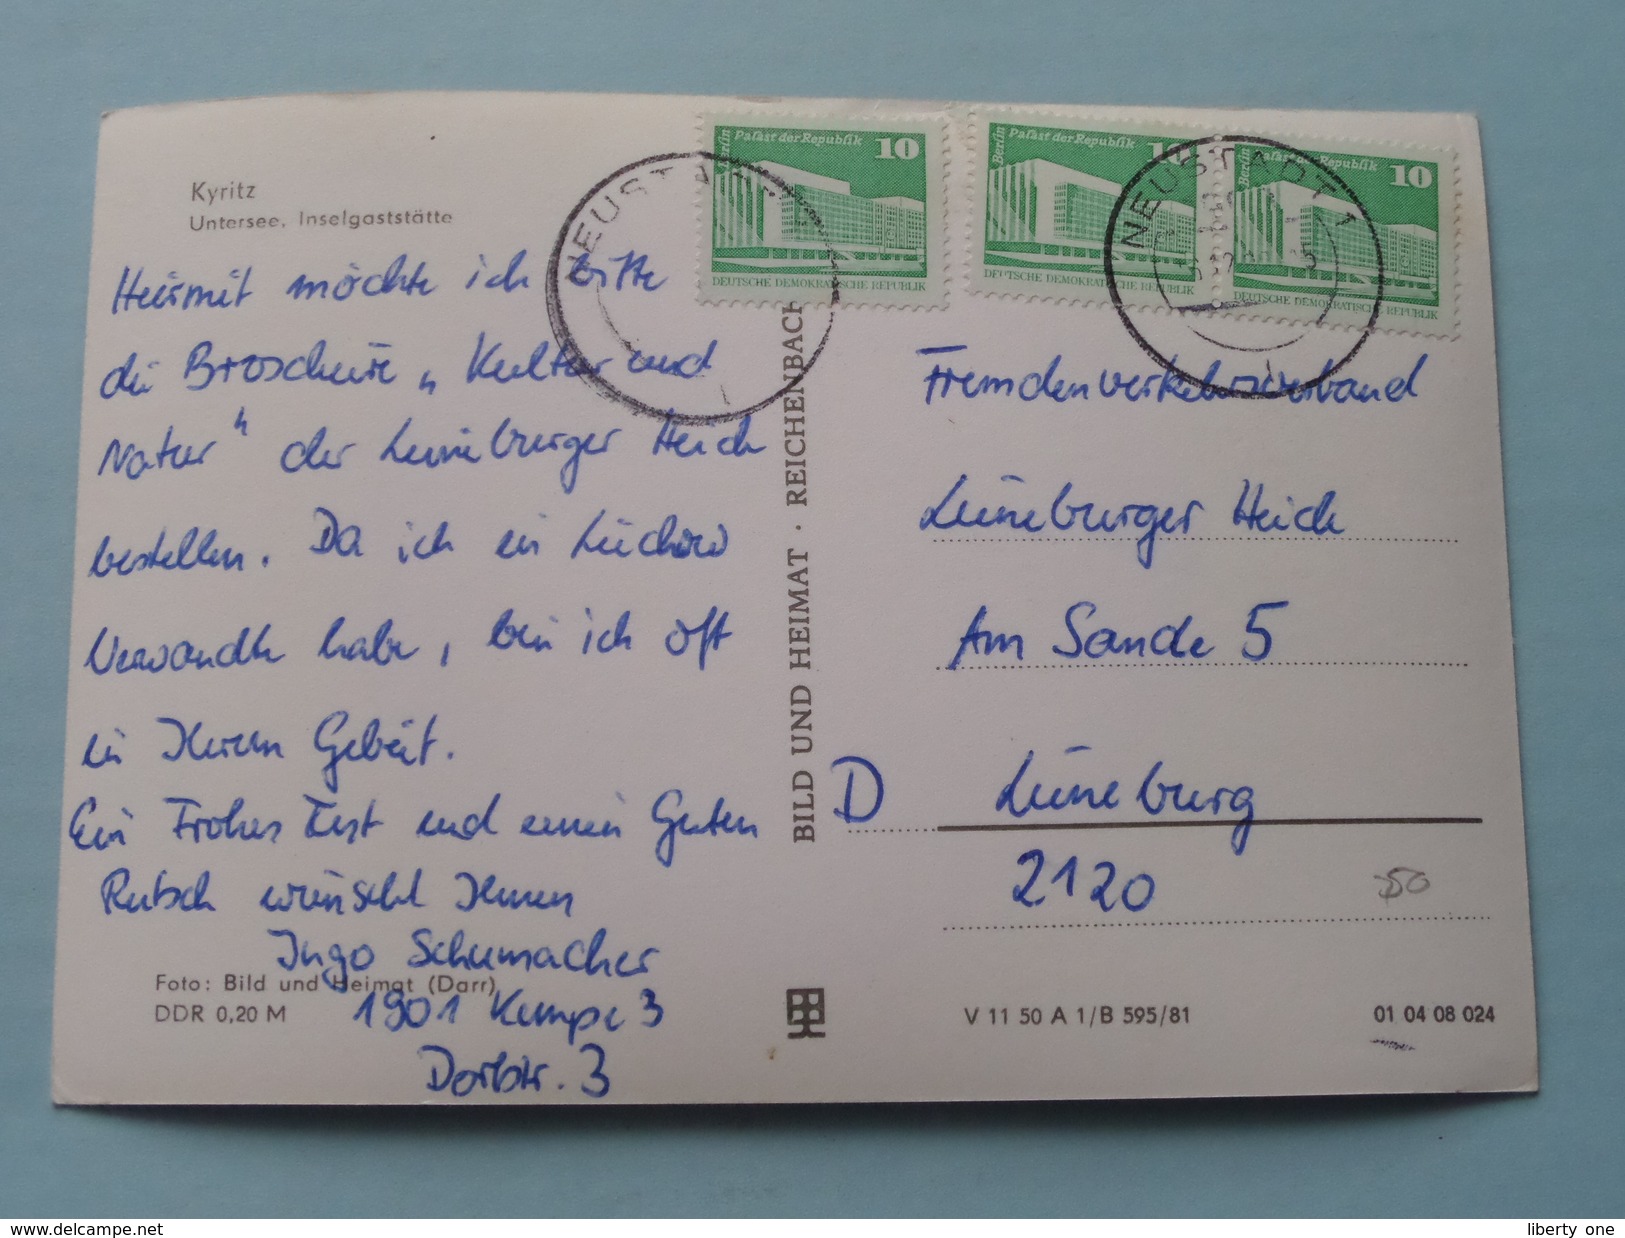 Kyritz
Untersee, Inselgaststätte
Hiermit möchte ich bitte
die Broschüre „Kultur und
Natur" der Lüneburger Heide
bestellen. Da ich in Lüchow
Verwandte habe, bin ich oft
in Ihrem Gebiet.
Ein Frohes Fest und einen Guten
Rutsch wünscht Ihnen
Ingo Schumacher
1901 Kampe 3
Dorfstr. 3
Foto: Bild und Heimat (Darr)
DDR 0,20 M
BILD UND HEIMAT · REICHENBACH
Berlin
Palast der Republik
10
DEUTSCHE DEMOKRATISCHE REPUBLIK
Berlin
Palast der Republik
10
DEUTSCHE DEMOKRATISCHE REPUBLIK
Berlin
Palast der Republik
10
DEUTSCHE DEMOKRATISCHE REPUBLIK
NEUSTADT
NEUSTADT 1
Fremdenverkehrsverband
Lüneburger Heide
Am Sande 5
D Lüneburg
2120
50
V 11 50 A 1/B 595/81
01 04 08 024
www.delcampe.net
liberty_one